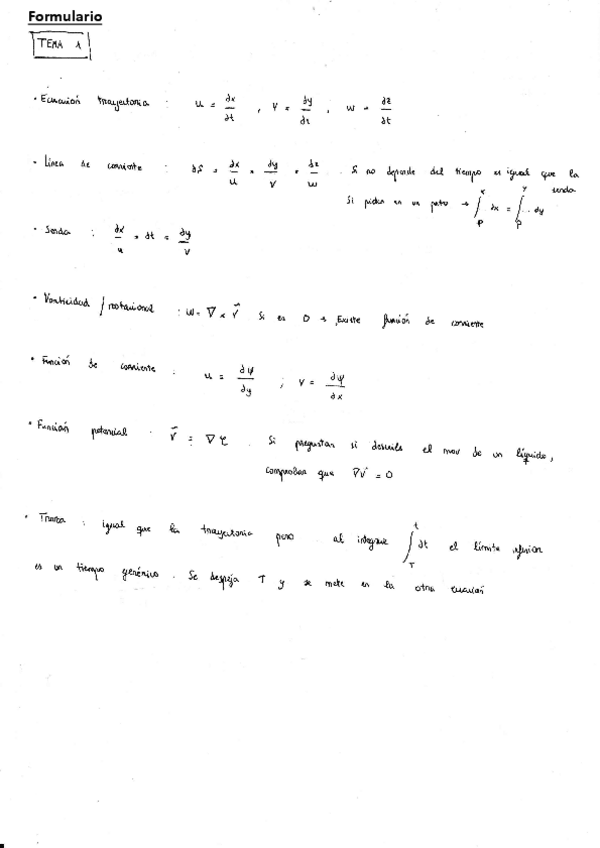 Formulario
TEMA 1
· Ecuación trayectoria : u = ∂x/∂t , V = ∂y/∂t , w = ∂z/∂t
· Línea de corriente : = ∂x/u = ∂y/V = ∂z/w . Si no depende del tiempo es igual que la senda
Si piden en un pto → ∫_P^x dx = ∫_P^y ... dy
· Senda : ∂x/u = ∂t = ∂y/V
· Vorticidad / rotacional : w = ∇ x V⃗ Si es 0 → Existe función de corriente
· Función de corriente : u = ∂ψ/∂y ; V = ∂ψ/∂x
· Función potencial . V⃗ = ∇φ . Si preguntan si describe el mov de un líquido,
comprobar que ∇V = 0
· Traza : igual que la trayectoria pero al integrar ∫_T^t dt el límite inferior
es un tiempo genérico . Se despeja T y se mete en la otra ecuación